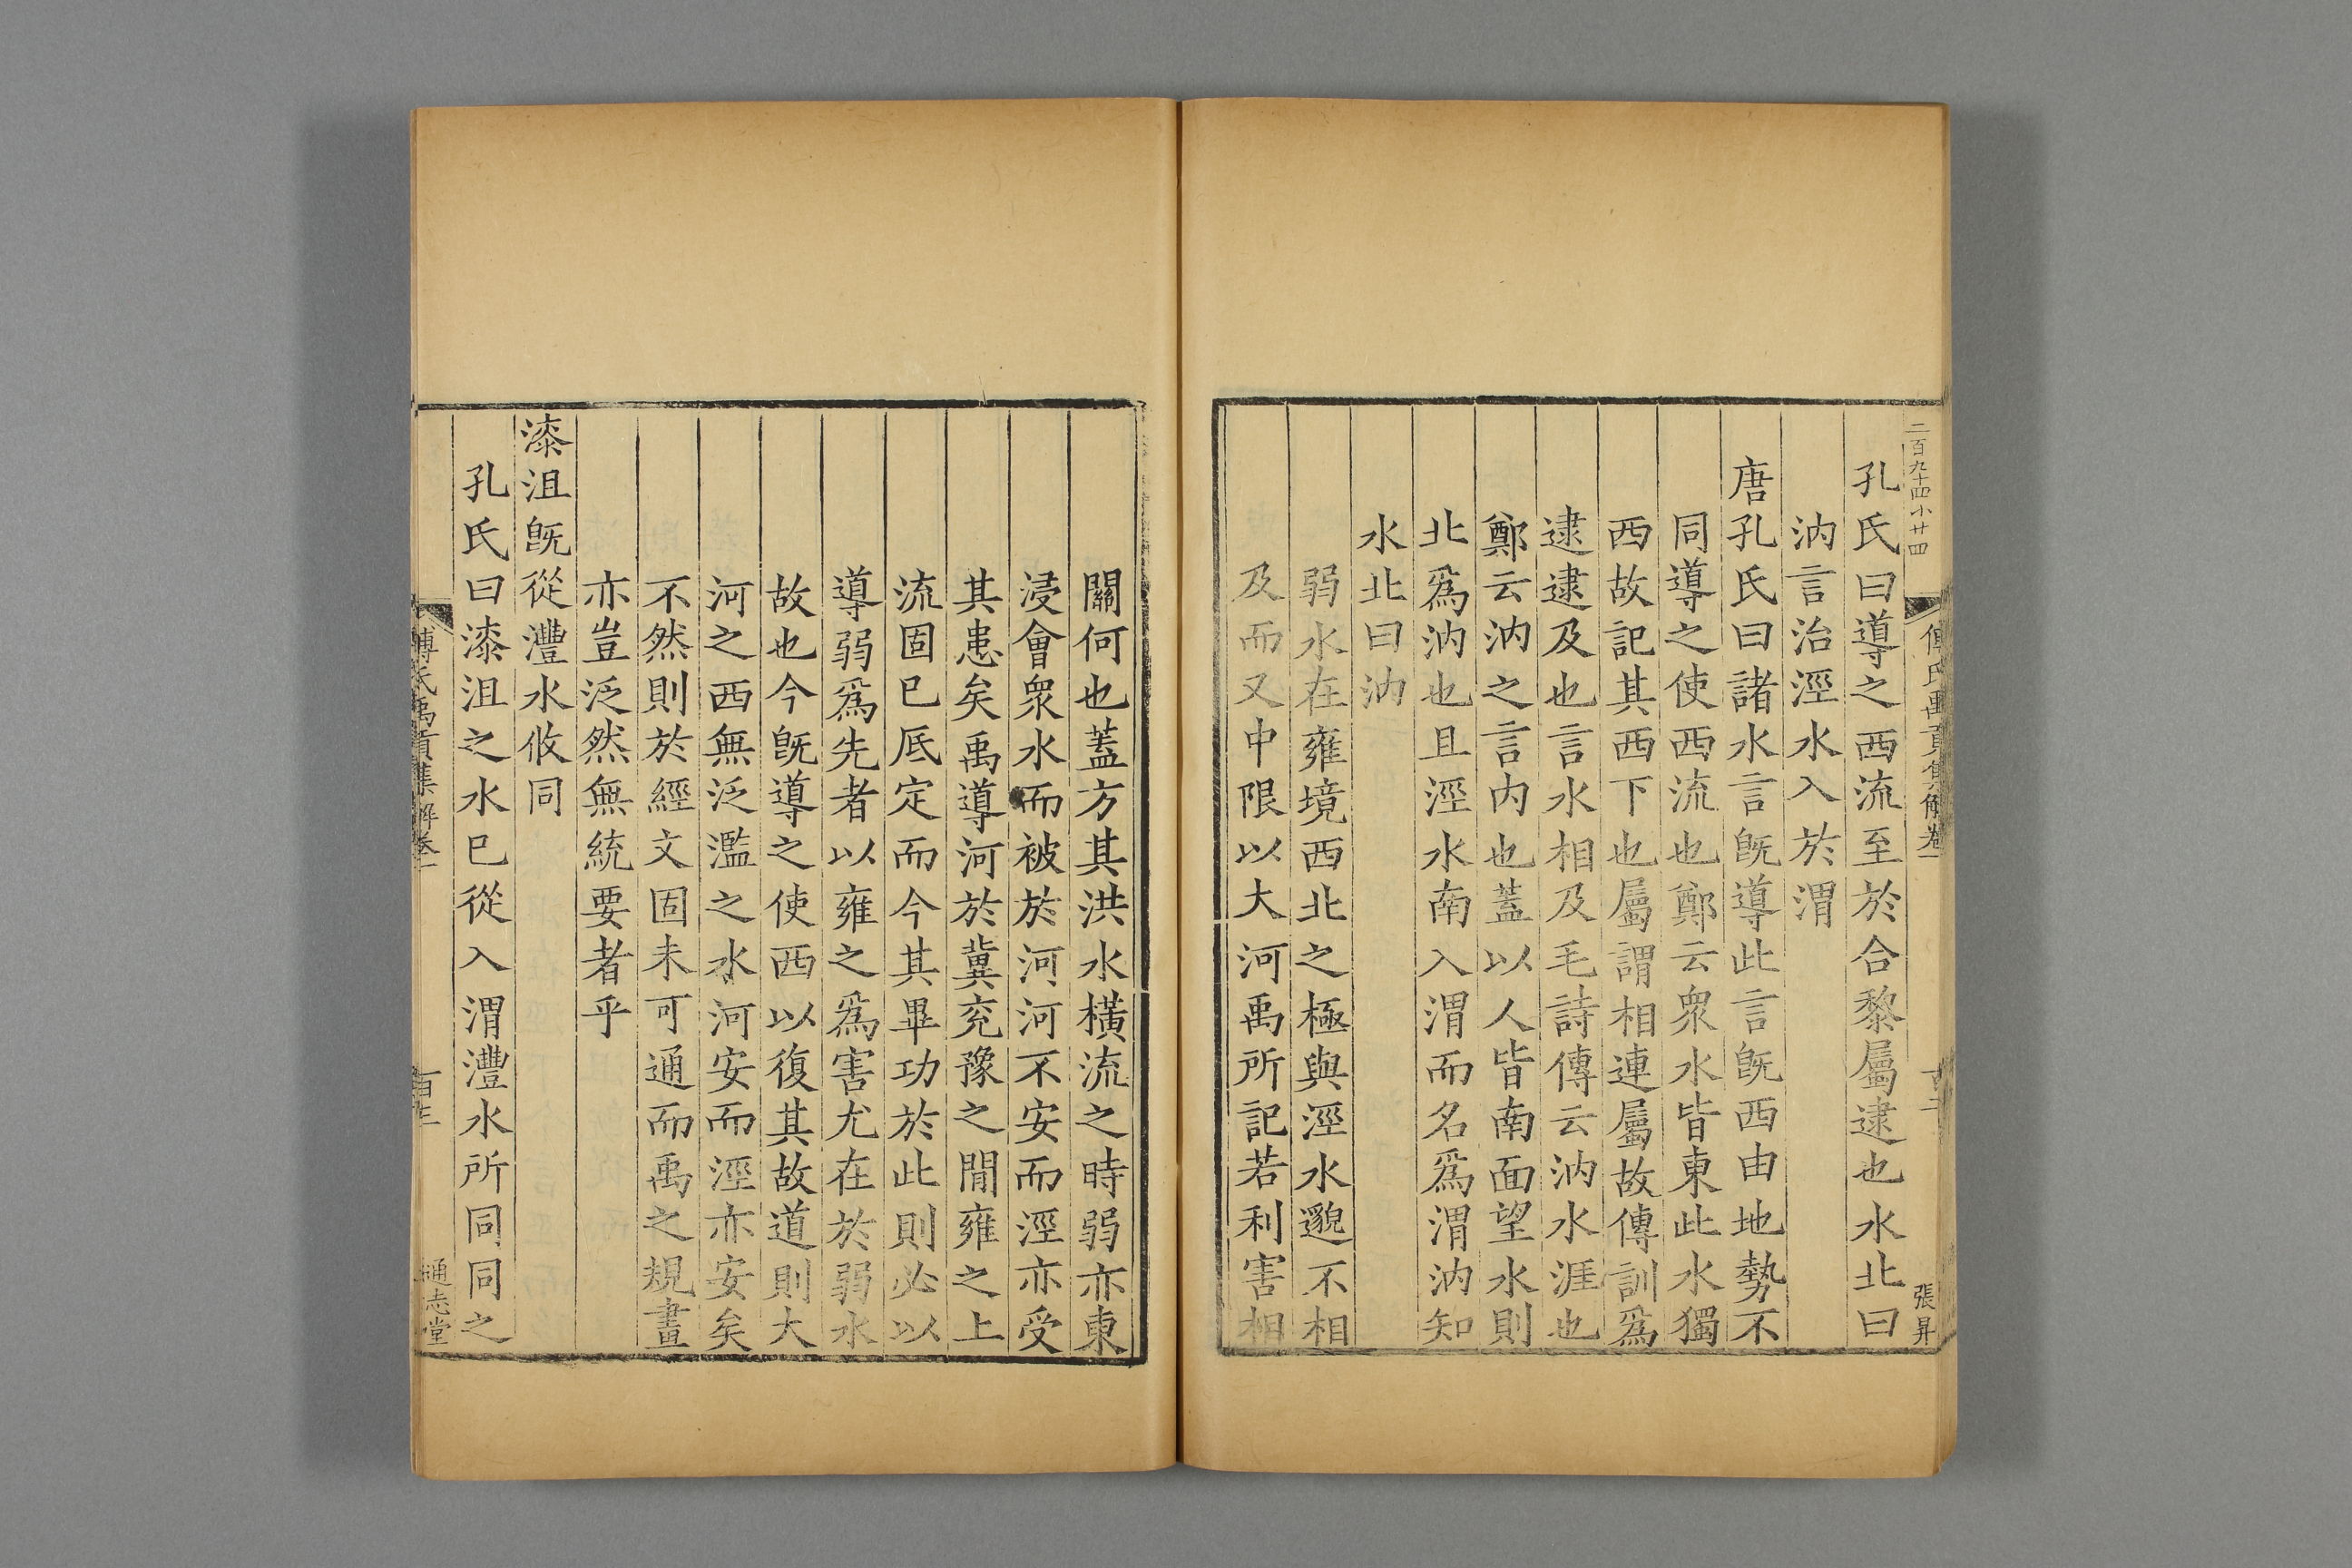 二百九十四小廿四
張昇
孔氏曰導之西流至於合黎屬逮也水北曰
汭言治涇水入於渭
唐孔氏曰諸水言旣導此言旣西由地勢不
同導之使西流也鄭云衆水皆東此水獨
西故記其西下也屬謂相連屬故傳訓爲
逮逮及也言水相及毛詩傳云汭水涯也
鄭云汭之言內也蓋以人皆南面望水則
北爲汭也且涇水南入渭而名爲渭汭知
水北曰汭
弱水在雍境西北之極與涇水邈不相
及而又中限以大河禹所記若利害相
關何也蓋方其洪水橫流之時弱亦東
浸會衆水而被於河河不安而涇亦受
其患矣禹導河於冀兖豫之閒雍之上
流固已厎定而今其畢功於此則必以
導弱爲先者以雍之爲害尤在於弱水
故也今旣導之使西以復其故道則大
河之西無泛濫之水河安而涇亦安矣
不然則於經文固未可通而禹之規畫
亦豈泛然無統要者乎
漆沮旣從灃水攸同
孔氏曰漆沮之水已從入渭灃水所同同之
傅氏禹貢集解卷一
通志堂